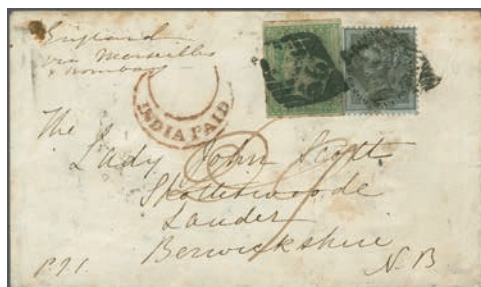 England
via Marseilles
& Bombay
INDIA PAID
The
Lady John Scott
Lauder
Berwickshire
N.B